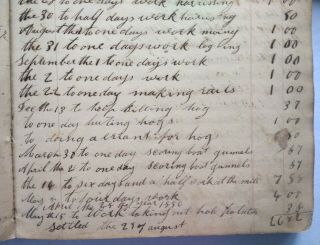 to one days work harvesting
the 30 to half days work harvesting 50
August the 1 to one days work moing 1 00
the 31 to one days work logling 1 00
September the 1 to one days work 1 00
the 2 to one days work 1 00
the 22 to one day making rails 1 00
Dec the 19 to help killing hog 37
to one day hunting hogs 1 00
to doing a erant for hog 50
March 30 to one day scoring boat gunnels 87
April the to one day scoring boat gunnels 87
the 16 to six days and a half work at the mill 7
May to four days work 4 00
April the year 1850
May th 15 to work taking out hole potatoes
settled the 27 of august